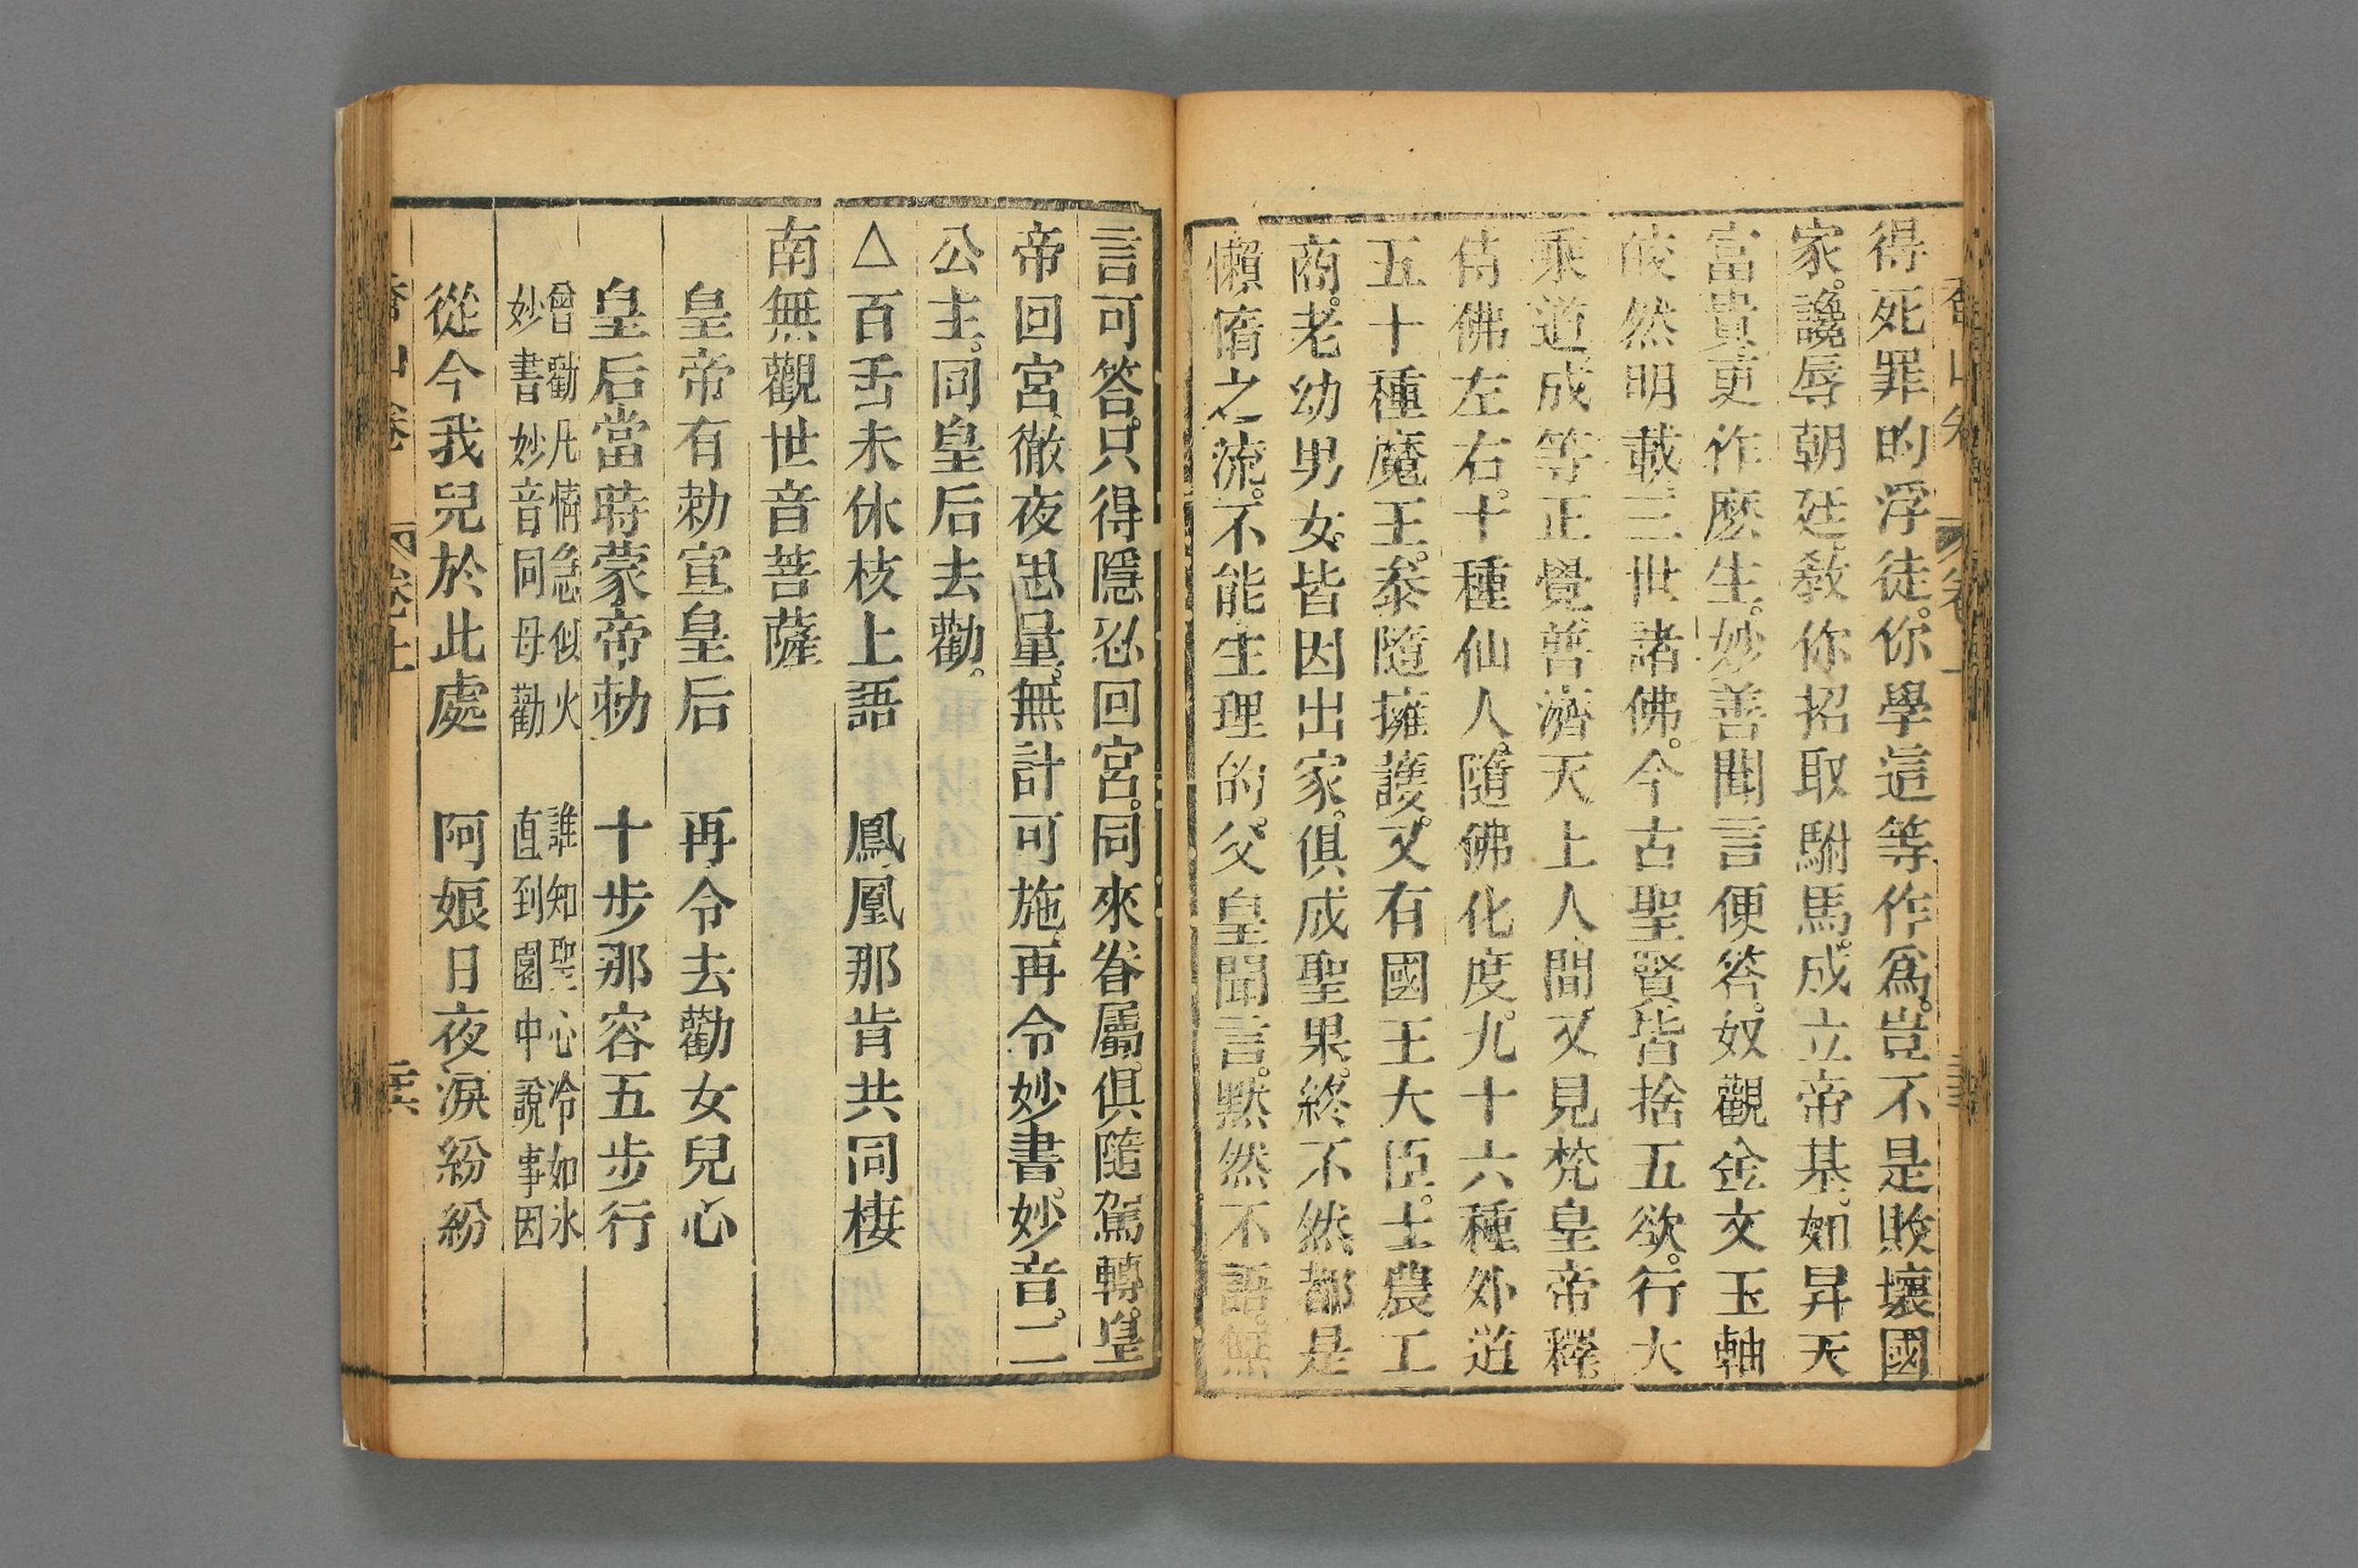 得死罪的浮徒。你學這等作爲。豈不是敗壞國
家。讒辱朝廷。敎你招取駙馬。成立帝基。如昇天
富貴。更作麽生。妙善聞言便答。奴觀金文玉軸
皎然明載。三世諸佛。今古聖賢。皆捨五欲。行大
乘道。成等正覺。普濟天上人間。又見梵皇帝釋。
侍佛左右。十種仙人。隨佛化度。九十六種外道
五十種魔王。泰隨擁護。又有國王大臣。士農工
商。老幼男女。皆因出家。俱成聖果。終不然都是
懶惰之流。不能生理的。父皇聞言。默然不語。無
言可答。只得隱忍回宮。同來眷屬。俱隨駕轉。皇
帝回宮。徹夜思量。無計可施。再令妙書。妙音。二
公主。同皇后去勸。
△百舌未休枝上語　鳳凰那肯共同棲
南無觀世音菩薩
皇帝有勅宣皇后　再令去勸女兒心
皇后當時蒙帝勅　十步那容五步行
曾勸凡情急似火　誰知聖心冷如氷
妙書妙音同母勸　直到園中說事因
從今我兒於此處　阿娘日夜淚紛紛
香山卷　卷上